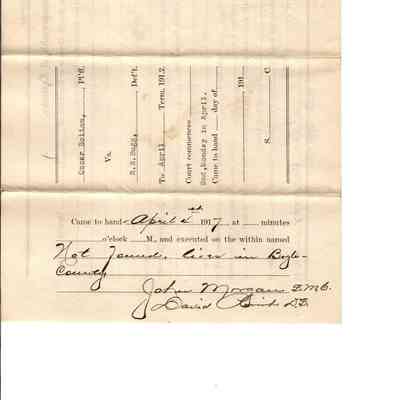 Oscar Bolton, Pl'ff.
Vs.
Def't.
To April Term, 191 2.
Court commences
2nd, Monday in April.
Came to hand day of
191
S. C.
Came to hand April 2st 1917 at minutes
o'clock M., and executed on the within named
Not Found. lives in Boyle
County
John Morgan
David D.S.